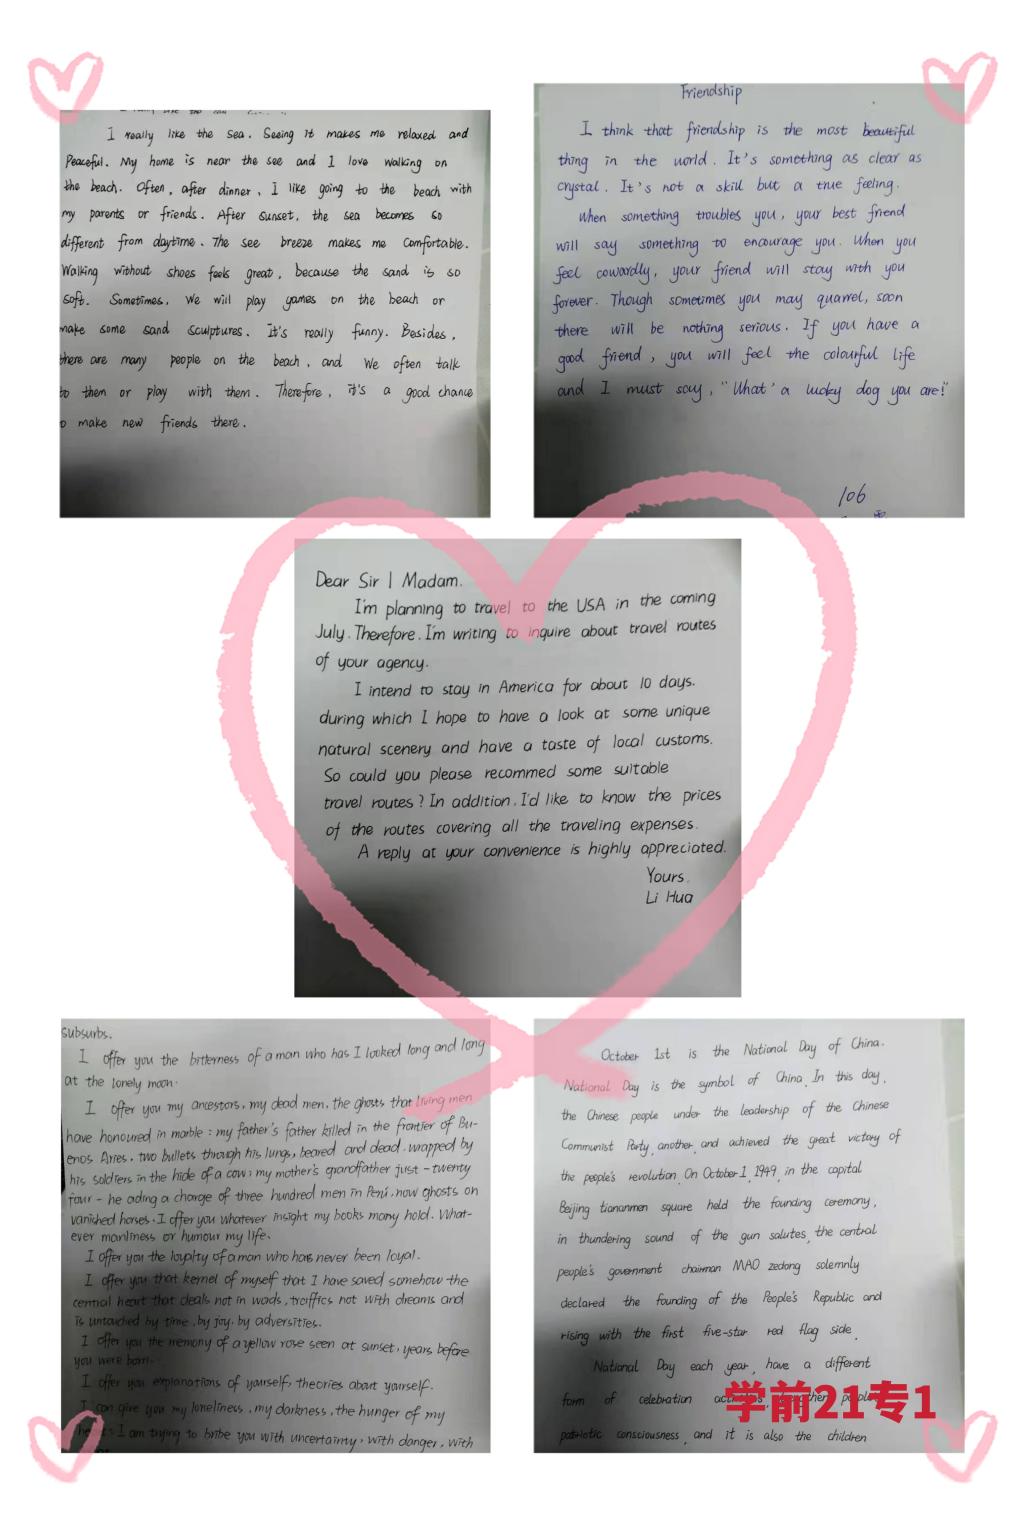 I really like the sea. Seeing it makes me relaxed and
Peaceful. My home is near the see and I love walking on
the beach. Often, after dinner, I like going to the beach with
my parents or friends. After sunset, the sea becomes so
different from daytime. The see breeze makes me comfortable.
Walking without shoes feels great, because the sand is so
soft. Sometimes, We will play games on the beach or
make some sand sculptures. It's really funny. Besides,
there are many people on the beach, and We often talk
to them or play with them. Therefore, it's a good chance
to make new friends there.
Friendship
I think that friendship is the most beautiful
thing in the world. It's something as clear as
crystal. It's not a skill but a true feeling.
When something troubles you, your best friend
will say something to encourage you. When you
feel cowardly, your friend will stay with you
forever. Though sometimes you may quarrel, soon
there will be nothing serious. If you have a
good friend, you will feel the colourful life
and I must say, "What' a lucky dog you are!"
106
Dear Sir | Madam.
I'm planning to travel to the USA in the coming
July. Therefore. I'm writing to inquire about travel routes
of your agency.
I intend to stay in America for about 10 days.
during which I hope to have a look at some unique
natural scenery and have a taste of local customs.
So could you please recommed some suitable
travel routes? In addition. I'd like to know the prices
of the routes covering all the traveling expenses.
A reply at your convenience is highly appreciated.
Yours.
Li Hua
subsurbs.
I offer you the bitterness of a man who has I looked long and long
at the lonely moon.
I offer you my ancestors, my dead men, the ghosts that living men
have honoured in marble: my father's father killed in the frontier of Bu-
enos Aries, two bullets through his lungs, beared and dead, wrapped by
his soldiers in the hide of a cow; my mother's grandfather just-twenty
four- he ading a charge of three hundred men in Perú, now ghosts on
vanished horses. I offer you whatever insight my books many hold. What-
ever manliness or humour my life.
I offer you the loyalty of a man who has never been loyal.
I offer you that kernel of myself that I have saved somehow the
central heart that deals not in wods, traffics not with dreams and
is untouched by time, by joy, by adversities.
I offer you the memory of a yellow rose seen at sunset, years before
you were born.
I offer you explanations of yourself, theories about yourself.
I can give you my loneliness, my darkness, the hunger of my
I am trying to bribe you with uncertainty, with danger, with
October 1st is the National Day of China.
National Day is the symbol of China. In this day,
the Chinese people under the leadership of the Chinese
Communist Party, another, and achieved the great victory of
the people's revolution. On October 1, 1949, in the capital
Beijing tiananmen square held the founding ceremony,
in thundering sound of the gun salutes, the central
people's government chairman MAO zedong solemnly
declared the founding of the People's Republic and
rising with the first five-star red flag side.
National Day each year, have a different
form of celebration
patriotic consciousness, and it is also the children
学前21专1